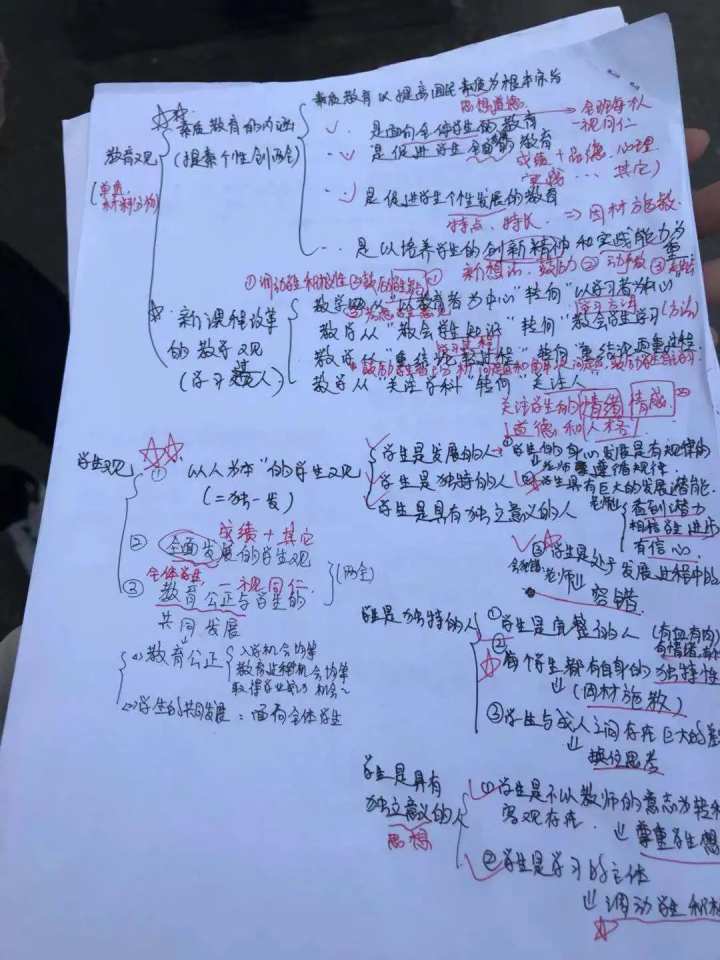 素质教育以提高国民素质为根本宗旨
思想道德
素质教育的内涵
是面向全体学生的教育
一视同仁
教育观
(提素个性创两全)
是促进学生全面的教育
成绩+品德、心理
(单选,
材料分析)
其它)
是促进学生个性发展的教育
特点、特长 ⇒ 因材施教
是以培养学生的创新精神和实践能力为重
新想法、鼓励 ② 动手
①调动学生积极性
教学从“以教育者为中心”转向“以学习者为中心”
新课程改革
学习方法
教学从“教会学生知识”转向“教会学生学习”(方法)
的教学观
教学从“重结论轻过程”转向“重结论更重过程
教学从“关注学科”转向“关注人
关注学生的情绪 情感
道德和人格
学生观
① “以人为本”的学生观
(=独一发)
学生是发展的人
①学生的身心发展是有规律的
老师要遵循规律.
学生是独特的人
②学生具有巨大的发展潜能.
学生是具有独立意义的人
老师
看到潜力
相信学生进步
有信心.
成绩+其它
② 全面发展的学生观
(两全)
③学生是处于发展过程中的
老师
容错
全体学生, 一视同仁.
③ 教育公正与学生的
共同发展
(1)教育公正
入学机会均等
教育过程机会均等
(2)学生的共同发展: 面向全体学生
学生是独特的人
①学生是完整的人 (有血有肉
有情绪
②
每个学生都有自身的独特性
(因材施教)
③学生与成人之间存在巨大的差
换位思考
学生是具有
独立意义的人
思想
①学生是不以教师的意志为转
客观存在. 尊重学生想
②学生是学习的主体
调动学生积极